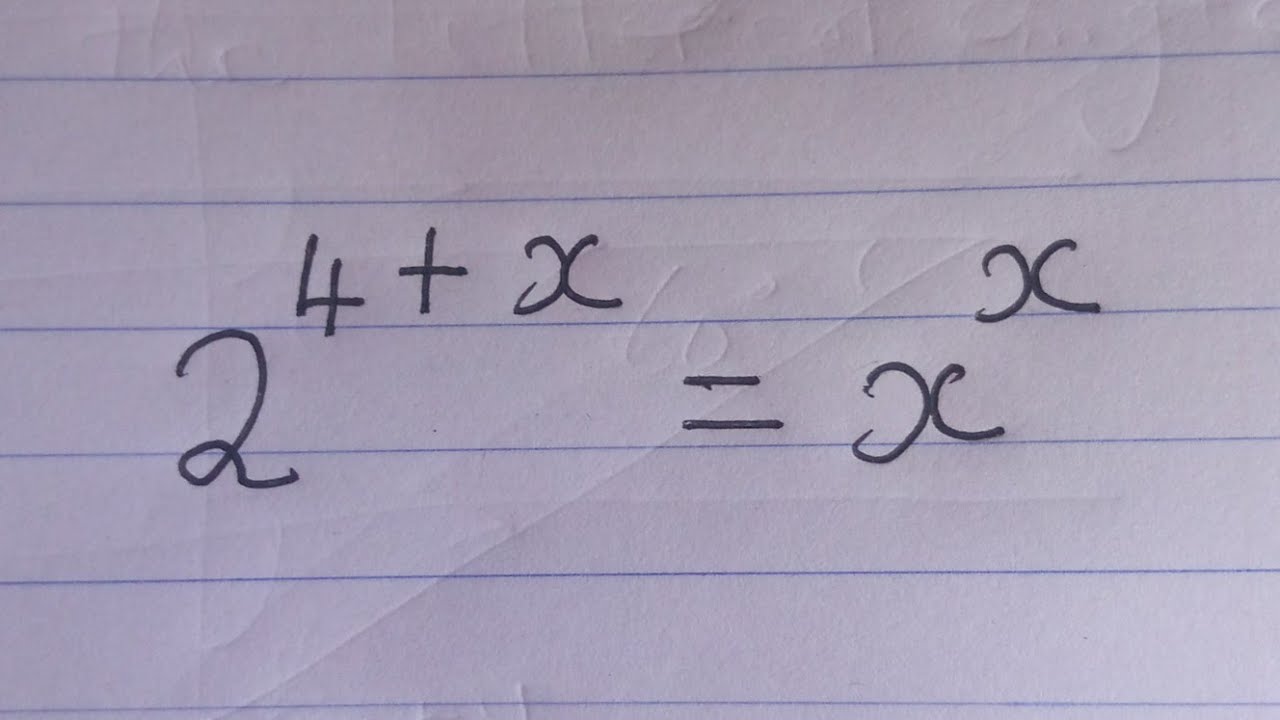 2^{4+x} = x^x